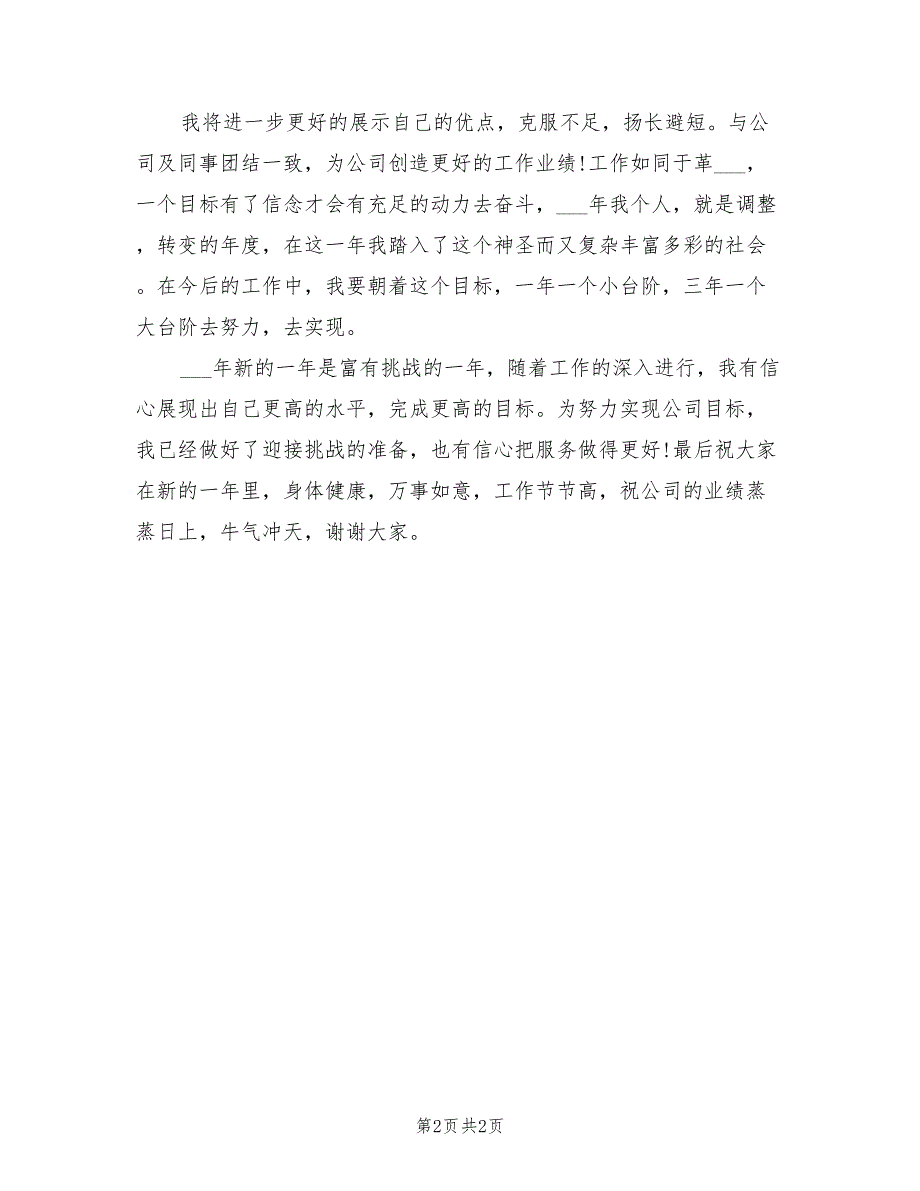 我将进一步更好的展示自己的优点，克服不足，扬长避短。与公
司及同事团结一致，为公司创造更好的工作业绩!工作如同于革___，
一个目标有了信念才会有充足的动力去奋斗，___年我个人，就是调整
，转变的年度，在这一年我踏入了这个神圣而又复杂丰富多彩的社会
。在今后的工作中，我要朝着这个目标，一年一个小台阶，三年一个
大台阶去努力，去实现。
___年新的一年是富有挑战的一年，随着工作的深入进行，我有信
心展现出自己更高的水平，完成更高的目标。为努力实现公司目标，
我已经做好了迎接挑战的准备，也有信心把服务做得更好!最后祝大家
在新的一年里，身体健康，万事如意，工作节节高，祝公司的业绩蒸
蒸日上，牛气冲天，谢谢大家。
第2页 共2页